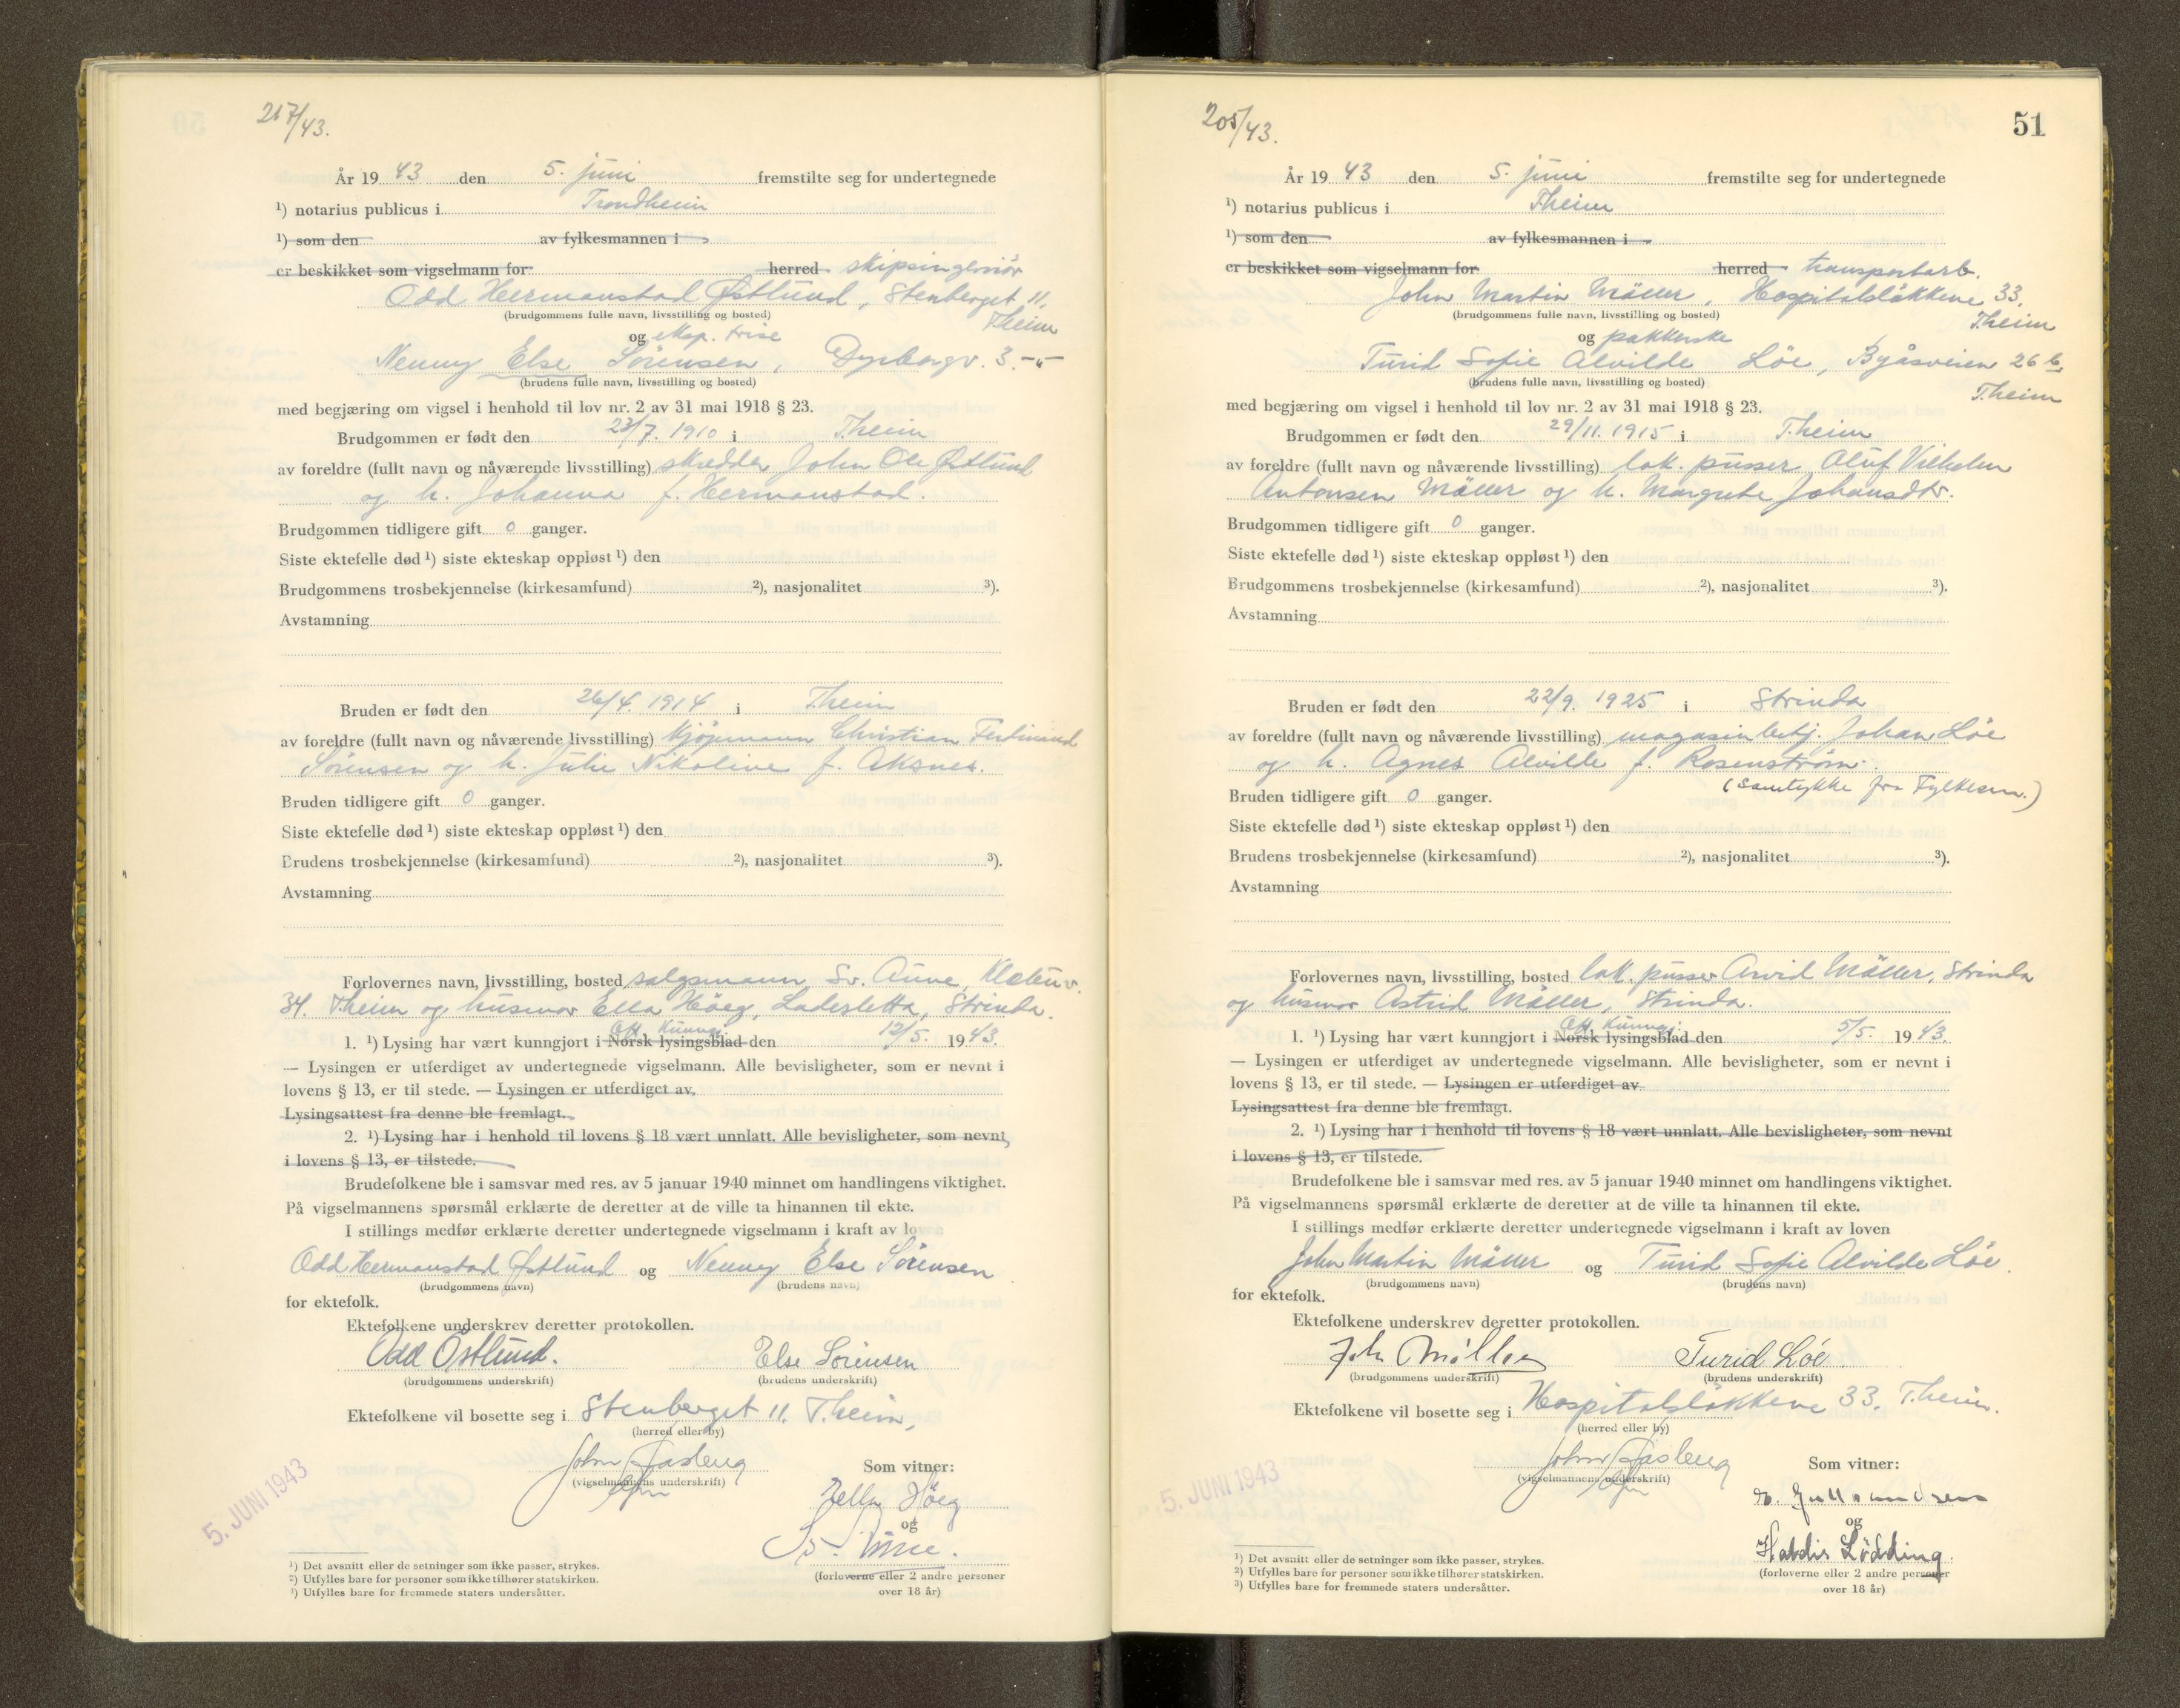 217/43.
År 19 43 den 5. juni fremstilte seg for undertegnede
¹) notarius publicus i Trondheim
¹) som den av fylkesmannen i
er beskikket som vigselmann for herred skipsingeniör
Odd Hermanstad Østlund, Stenberget 11.
(brudgommens fulle navn, livsstilling og bosted) T.heim
og eksp. trise
Nenny Else Sörensen, Dyrborgv. 3. -"-
(brudens fulle navn, livsstilling og bosted)
med begjæring om vigsel i henhold til lov nr. 2 av 31 mai 1918 § 23.
Brudgommen er født den 23/7. 1910 i T.heim
av foreldre (fullt navn og nåværende livsstilling) skredder John Ole Østlund
og h. Johanna f. Hermanstad.
Brudgommen tidligere gift 0 ganger.
Siste ektefelle død ¹) siste ekteskap oppløst ¹) den
Brudgommens trosbekjennelse (kirkesamfund) ²), nasjonalitet ³).
Avstamning
Bruden er født den 26/4. 1914 i T.heim
av foreldre (fullt navn og nåværende livsstilling) kjöpmann Christian Ferdinand
Sörensen og h. Julie Nikoline f. Aksnes.
Bruden tidligere gift 0 ganger.
Siste ektefelle død ¹) siste ekteskap oppløst ¹) den
Brudens trosbekjennelse (kirkesamfund) ²), nasjonalitet ³).
Avstamning
Forlovernes navn, livsstilling, bosted salgsmann Sv. Aune, Klæbuv.
34. T.heim og husmor Ella Höeg, Ladesletta, Strinda.
Off. Kunngj.
1. ¹) Lysing har vært kunngjort i Norsk lysingsblad den 12/5. 19 43.
— Lysingen er utferdiget av undertegnede vigselmann. Alle bevisligheter, som er nevnt i
lovens § 13, er til stede. — Lysingen er utferdiget av
Lysingsattest fra denne ble fremlagt.
2. ¹) Lysing har i henhold til lovens § 18 vært unnlatt. Alle bevisligheter, som nevnt
i lovens § 13, er tilstede.
Brudefolkene ble i samsvar med res. av 5 januar 1940 minnet om handlingens viktighet.
På vigselmannens spørsmål erklærte de deretter at de ville ta hinannen til ekte.
I stillings medfør erklærte deretter undertegnede vigselmann i kraft av loven
Odd Hermanstad Østlund og Nenny Else Sörensen
(brudgommens navn) (brudens navn)
for ektefolk.
Ektefolkene underskrev deretter protokollen.
Odd Östlund. Else Sörensen
(brudgommens underskrift) (brudens underskrift)
Ektefolkene vil bosette seg i Stenberget 11. T.heim,
(herred eller by)
John
(vigselmannens underskrift) Som vitner:
5. JUNI 1943
Höeg
og
Sv. Aune.
(forloverne eller 2 andre personer
over 18 år)
¹) Det avsnitt eller de setninger som ikke passer, strykes.
²) Utfylles bare for personer som ikke tilhører statskirken.
³) Utfylles bare for fremmede staters undersåtter.
205/43.
51
År 19 43 den 5. juni fremstilte seg for undertegnede
¹) notarius publicus i T.heim
¹) som den av fylkesmannen i
er beskikket som vigselmann for herred transportarb.
John Martin Möller, Hospitalslökkene 33.
(brudgommens fulle navn, livsstilling og bosted) T.heim
og pakkerske
Turid Sofie Alvilde Löe, Byåsveien 26 b
(brudens fulle navn, livsstilling og bosted) T.heim
med begjæring om vigsel i henhold til lov nr. 2 av 31 mai 1918 § 23.
Brudgommen er født den 29/11. 1915 i T.heim
av foreldre (fullt navn og nåværende livsstilling) lok. pusser Oluf Vilhelm
Antonsen Möller og h. Margrete Johansdtr.
Brudgommen tidligere gift 0 ganger.
Siste ektefelle død ¹) siste ekteskap oppløst ¹) den
Brudgommens trosbekjennelse (kirkesamfund) ²), nasjonalitet ³).
Avstamning
Bruden er født den 22/9. 1925 i Strinda
av foreldre (fullt navn og nåværende livsstilling) magasinbetj. Johan Löe
og h. Agnes Alvilde f. Rosenström.
(Samtykke fra Fylkesm.)
Bruden tidligere gift 0 ganger.
Siste ektefelle død ¹) siste ekteskap oppløst ¹) den
Brudens trosbekjennelse (kirkesamfund) ²), nasjonalitet ³).
Avstamning
Forlovernes navn, livsstilling, bosted lok. pusser Arvid Möller, Strinda
og husmor Astrid Möller, Strinda.
Off. Kunngj.
1. ¹) Lysing har vært kunngjort i Norsk lysingsblad den 5/5. 19 43.
— Lysingen er utferdiget av undertegnede vigselmann. Alle bevisligheter, som er nevnt i
lovens § 13, er til stede. — Lysingen er utferdiget av
Lysingsattest fra denne ble fremlagt.
2. ¹) Lysing har i henhold til lovens § 18 vært unnlatt. Alle bevisligheter, som nevnt
i lovens § 13, er tilstede.
Brudefolkene ble i samsvar med res. av 5 januar 1940 minnet om handlingens viktighet.
På vigselmannens spørsmål erklærte de deretter at de ville ta hinannen til ekte.
I stillings medfør erklærte deretter undertegnede vigselmann i kraft av loven
John Martin Möller og Turid Sofie Alvilde Löe.
(brudgommens navn) (brudens navn)
for ektefolk.
Ektefolkene underskrev deretter protokollen.
John Möller Turid Löe.
(brudgommens underskrift) (brudens underskrift)
Ektefolkene vil bosette seg i Hospitalslökkene 33. T.heim.
(herred eller by)
John
(vigselmannens underskrift) Som vitner:
5. JUNI 1943
og
Haldis Lödding.
(forloverne eller 2 andre personer
over 18 år)
¹) Det avsnitt eller de setninger som ikke passer, strykes.
²) Utfylles bare for personer som ikke tilhører statskirken.
³) Utfylles bare for fremmede staters undersåtter.